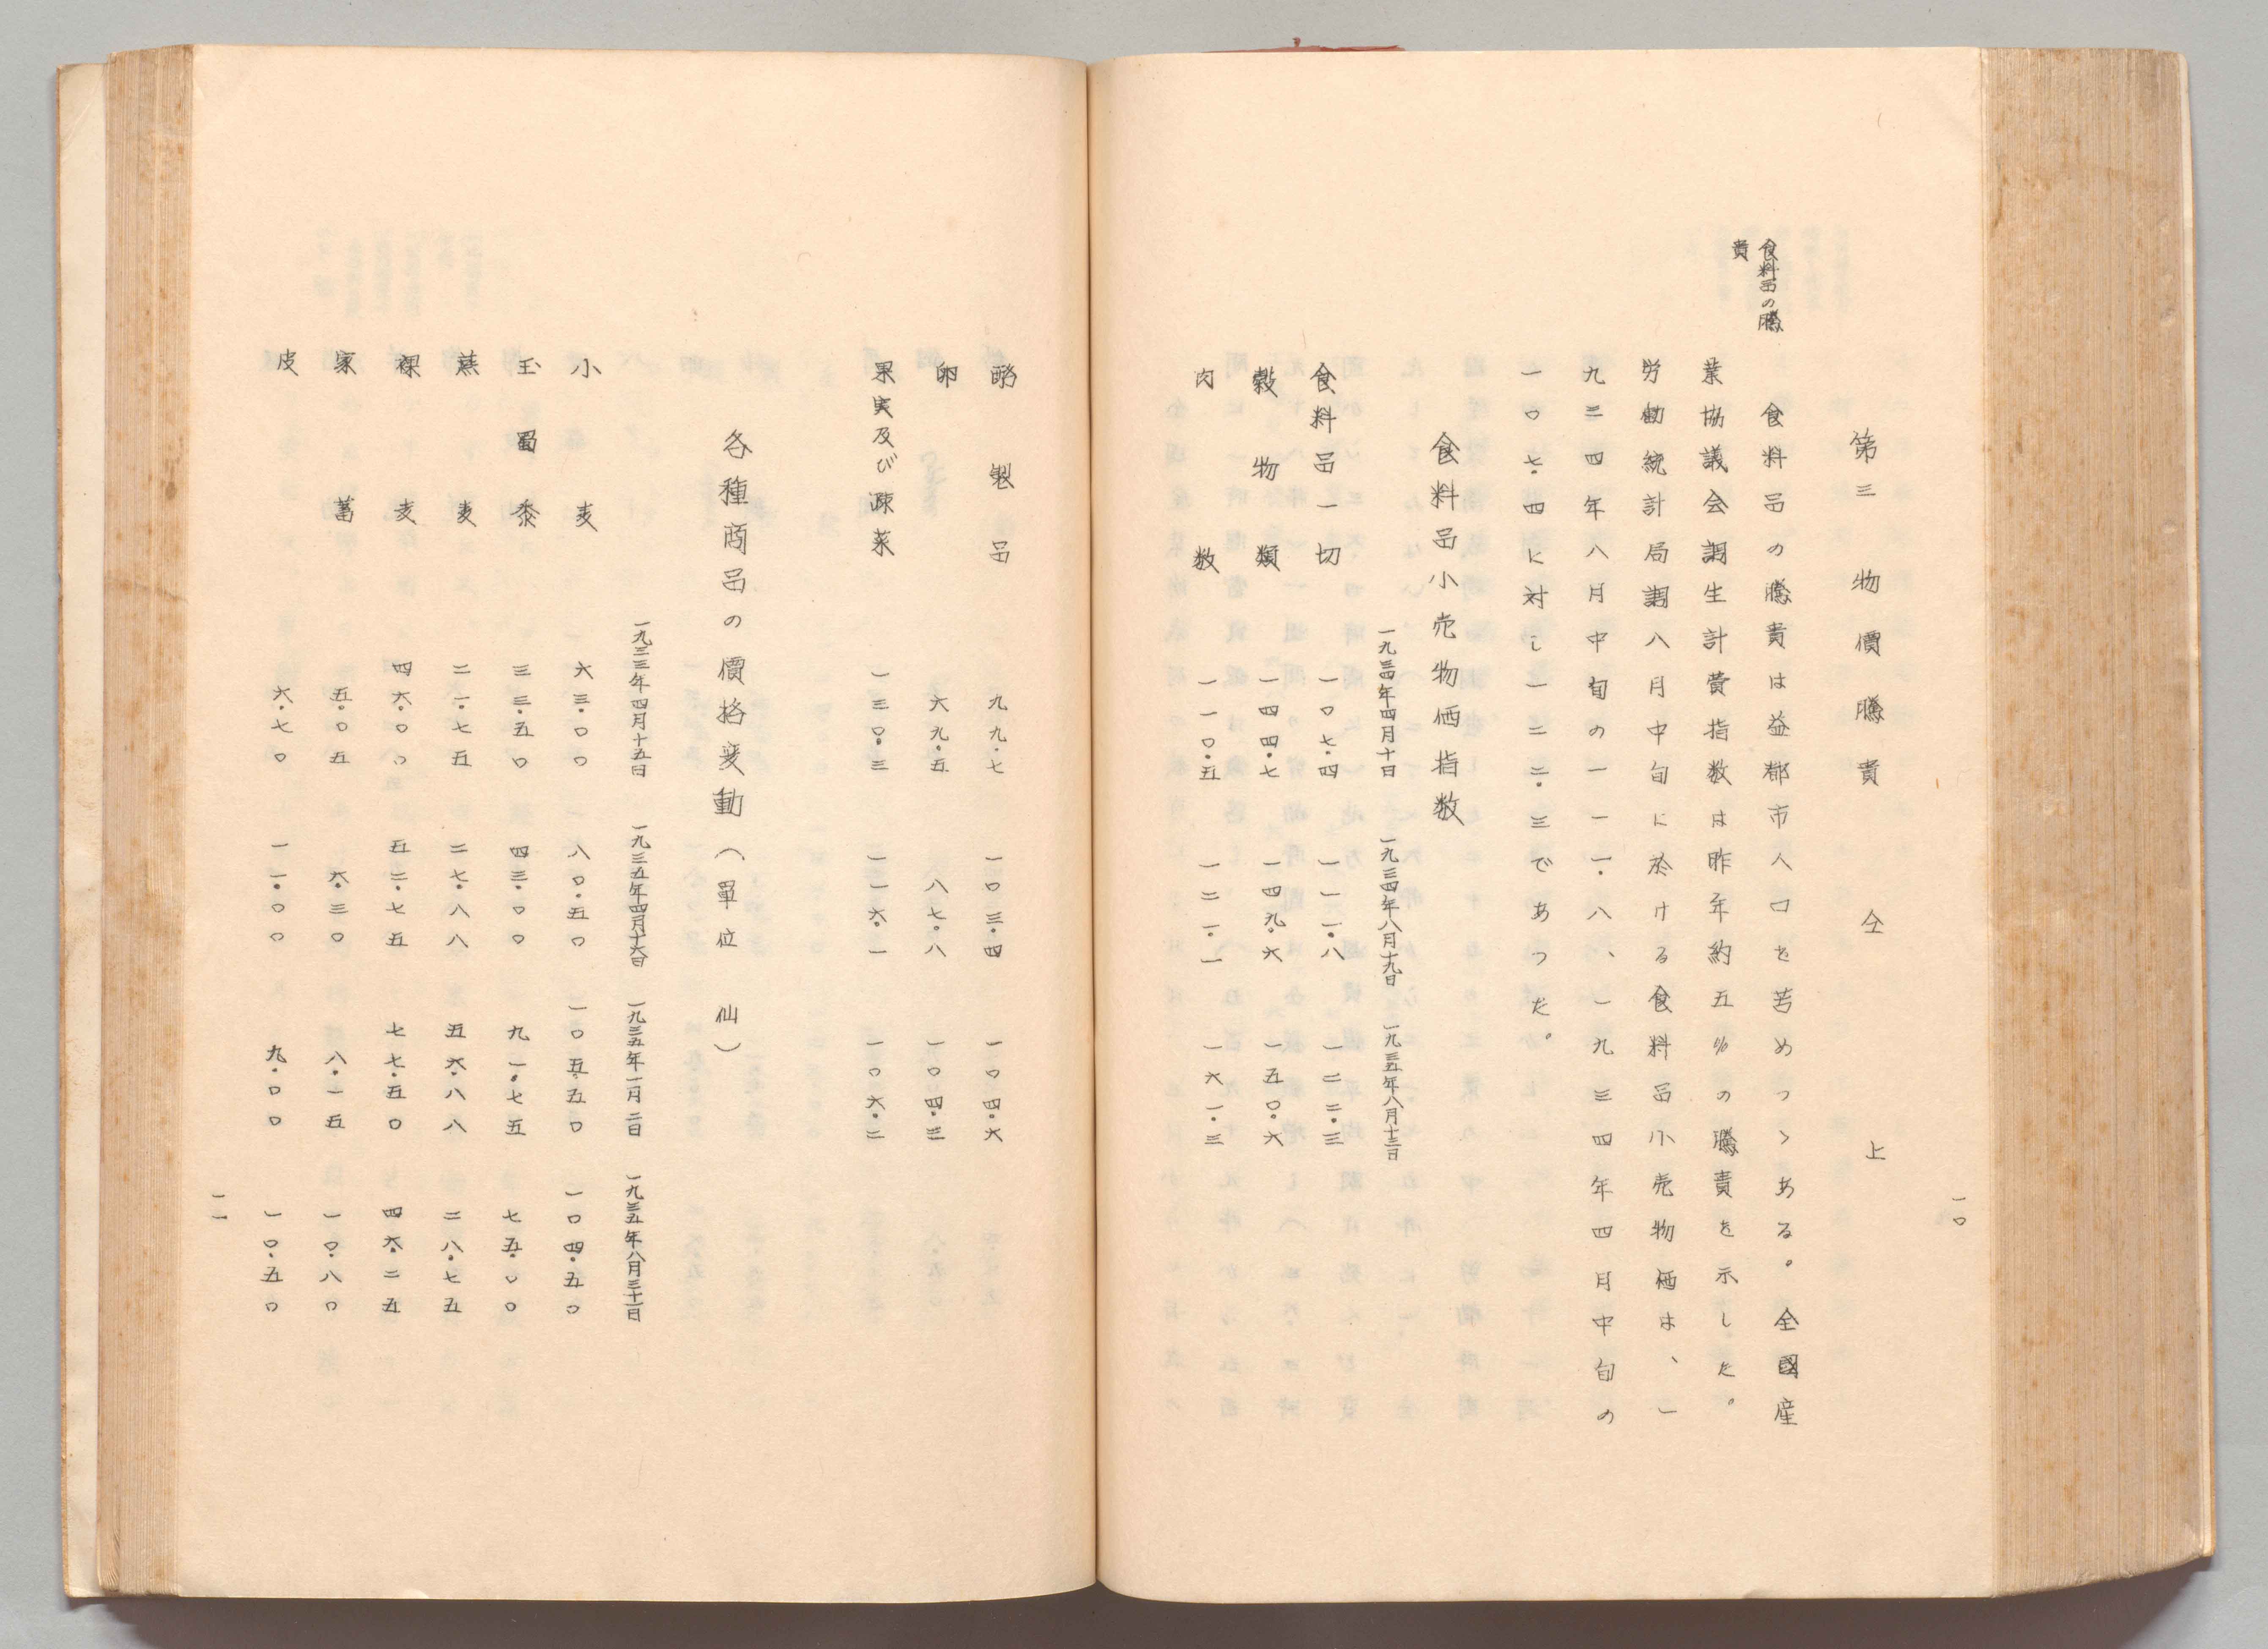 一〇
第三　物價騰貴　　仝　　上
食料品の騰
貴
食料品の騰貴は益都市人口を苦めつゝある。全國産
業協議会調生計費指数は昨年約五%の騰貴を示した。
労働統計局調八月中旬に於ける食料品小売物価は、一
九三四年八月中旬の一一一・八、一九三四年四月中旬の
一〇七・四に対し一二二・三であった。
食料品小売物価指数
一九三四年四月十日　一九三四年八月十九日　一九三五年八月十三日
食料品一切　一〇七・四　一一一・八　一二二・三
穀物類　一四四・七　一四九・六　一五〇・六
肉　数　一一〇・五　一二一・一　一六一・三
酪製品　九九・七　一〇三・四　一〇四・六
卵　六九・五　八七・八　一〇四・三
果実及び疎菜　一三〇・三　一一六・一　一〇六・二
各種商品の價格変動（單位　仙）
一九三三年四月十五日　一九三五年四月十六日　一九三五年一月二日　一九三五年八月三十一日
小麦　六三・〇〇　八〇・五〇　一〇五・五〇　一〇四・五〇
玉蜀黍　三三・五〇　四三・〇〇　九一・七五　七五・〇〇
燕麦　二一・七五　二七・八八　五六・八八　二八・七五
裸麦　四六・〇〇　五二・七五　七七・五〇　四六・二五
家蓄　五・〇五　六・三〇　八・一五　一〇・八〇
皮　六・七〇　一一・〇〇　九・〇〇　一〇・五〇
一一